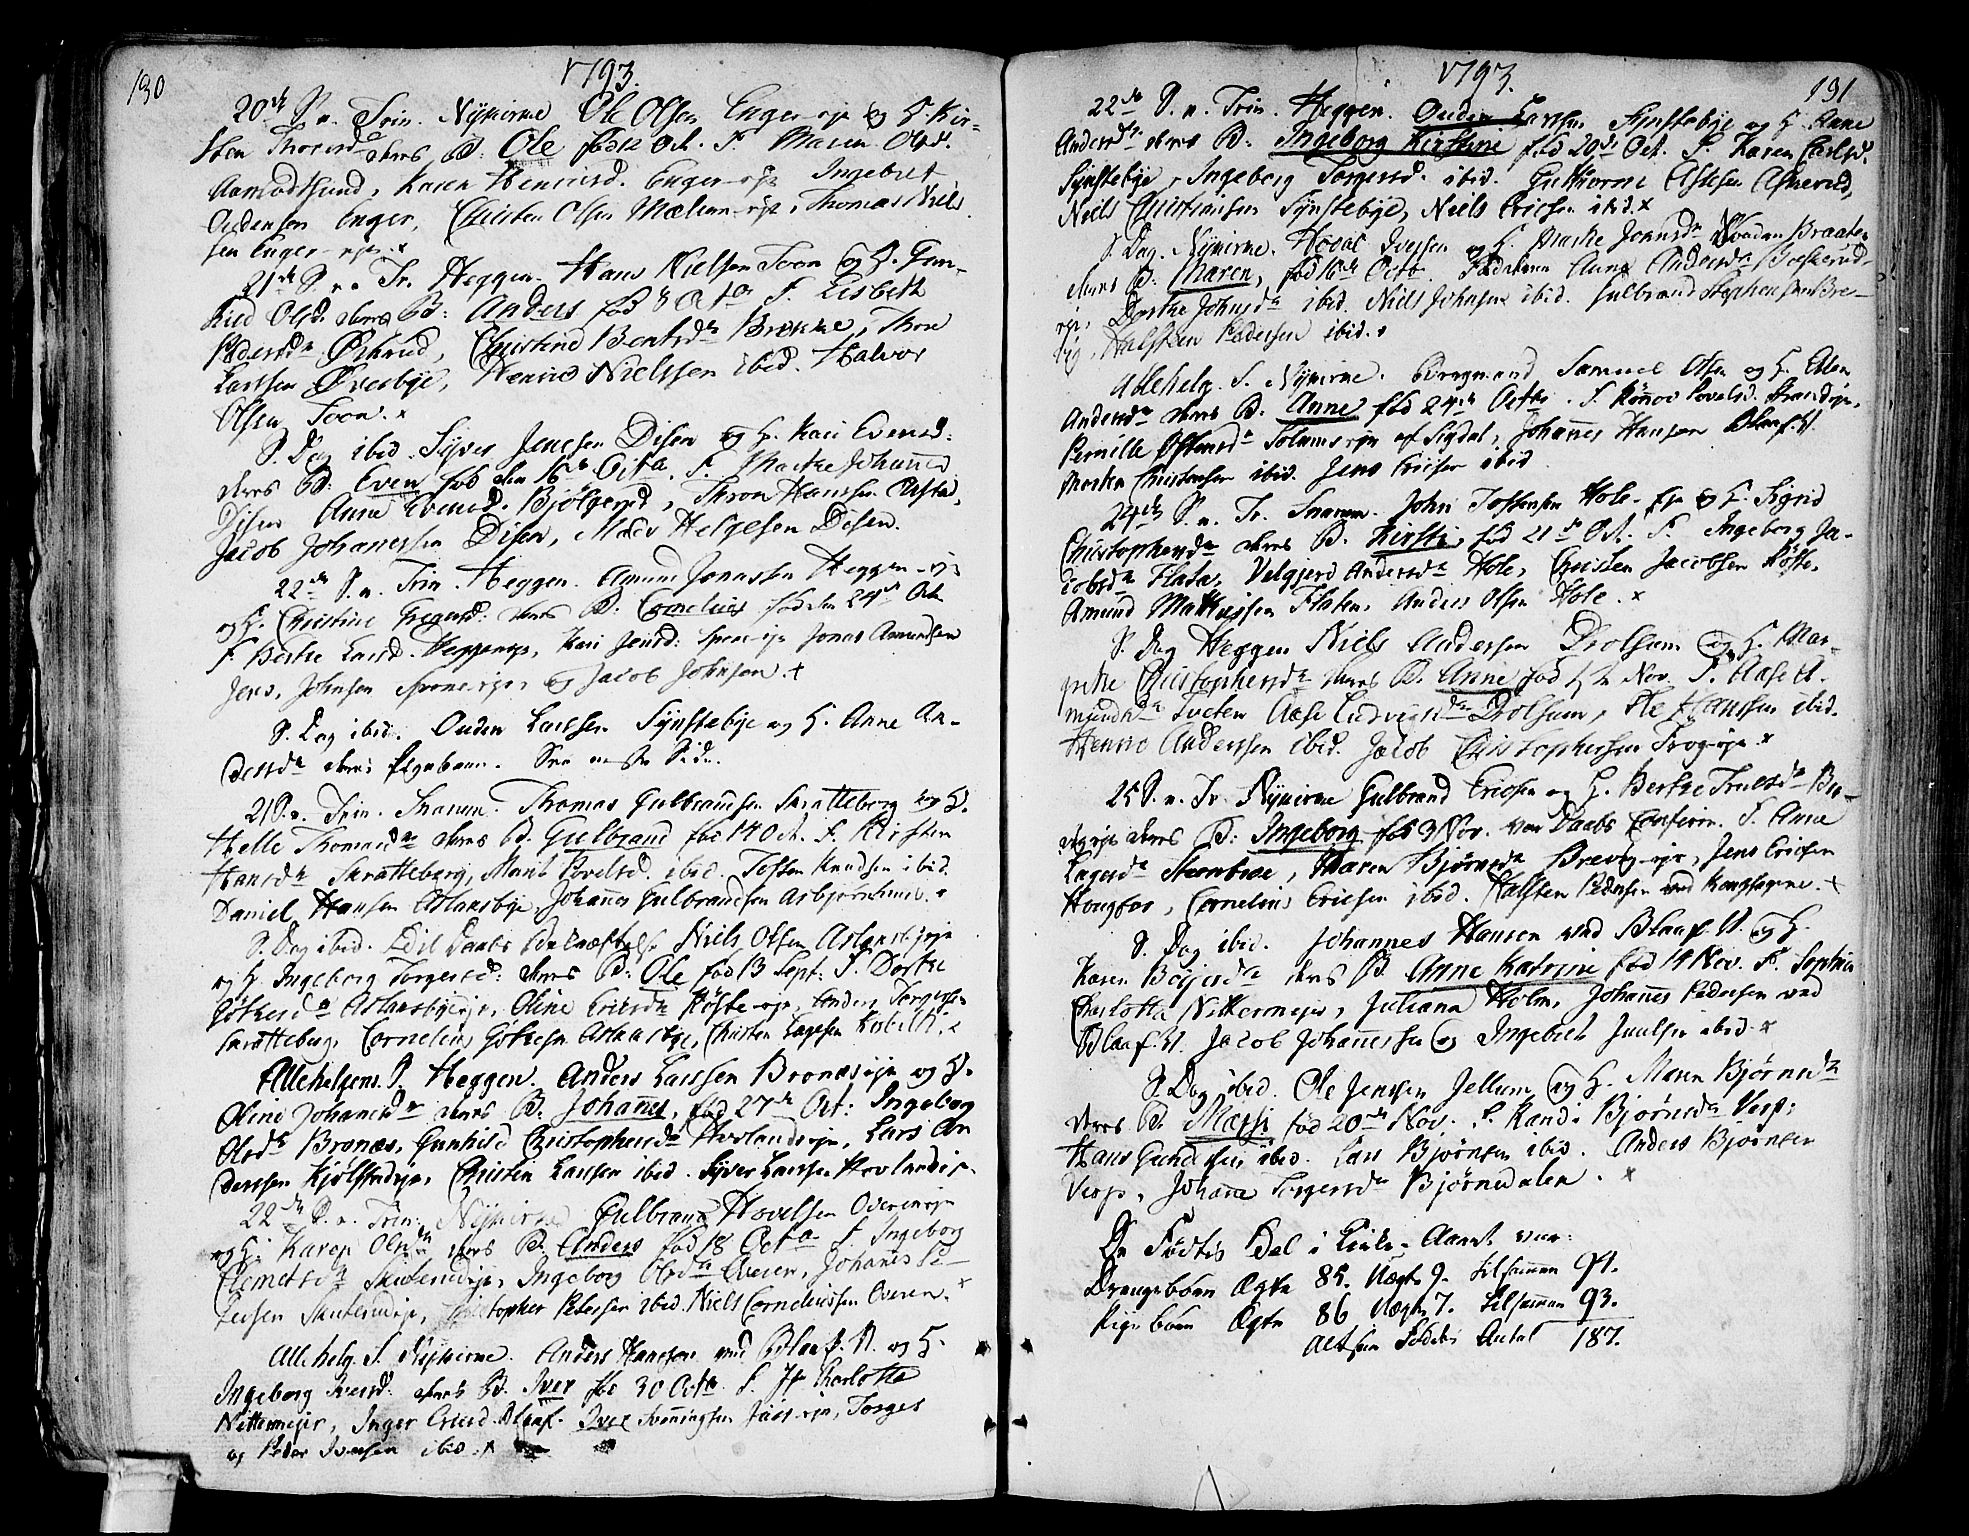 130
1793.
20de S. n. Trin. Nykirke Ole Olsen Enger-eje og H. Kir-
sten Thorsd. deres B: Ole fød 12 Oct. F. Maren Olsd.
Aamodtsund, Karen Henricsd. Enger-eje Ingebret
Oudensen Enger, Christen Olsen Mælum-eje, Thomas Niels
sen Enger-eje. x
21de S. n. Tr. Heggen. Hans Nielsen Toon og H. Gun-
hild Olsd. deres B: Anders fød 8 Octo F. Lisbeth
Pedersdr Østrud, Christine Berntsdr Brekke, Thor
Larssen Øvrebye, Henric Nielssen ibid. Halvor
Olsen Toon. x
S. Dag ibid. Syver Jenssen Disen og H. Kari Evensd:
deres B: Even fød den 16de Octo. F. Marthe Johannesd
Disen Anne Evensd. Bjølgerud, Thron Hanssen
Jacob Johanessen Disen, Mads Helgesen Disen.
22de S. n. Trin. Heggen. Amund Jonassen Heggen-eje
og H. Christine Gregersd: deres B. Cornelius fød den 24de Oct
F. Berthe Larsd. Heggeneje, Kari Jensd: Spone-eje Jonas Amundsen
Jens Johnsen Spone-eje, og Jacob Johnsen. +
S. Dag ibid. Ouden Larssen Synstebye og H. Anne An-
dersdr deres Pigebarn. See næste Side.
21 S. n. Trin. Snarum. Thomas Gulbransen Skratteberg og H.
Helle Thomasdr deres B. Gulbrand fød 14 Oct. F. Kirsten
Hansdr Skratteberg, Marit Povelsd. ibid. Tosten Knudsen ibid.
Daniel Hansen Aslaksbye, Johannes Gulbrandsen Asbjørnhuus. x
S. Dag ibid. Niels Olsen Aslaksbyeeje
og H. Ingeborg Torgersd: deres B: Ole fød 13 Sept: F. Dorthe
Aslaksbyeeje, Oline Ericsdr Røste-eje, Anders Torgersen
Skratteberg, Cornelius Aslaksbye, Christen Lagesen x
Allehelgens S. Heggen. Anders Larssen Bronæseje og H.
Oline Johanesdr deres B. Johannes, fød 27de Oct: Ingeborg
Olsdr Bronæs, Gunhild Christophersdr Hovlandseje, Lars An
derssen Kjølstadeje, Christen Larssen ibid. Syver Larssen Hovlandseje.
22de S. n. Trin: Nykirke Gulbrand Hovelsen Overeneje
og H. Karen Olsdr deres B. Anders fød 18 Octo F. Ingeborg
Clemetsdr Skuterudeje, Ingeborg Olsdr Overen, Johannes Pe-
dersen Skuterudeje, Christopher Pedersen ibid. Niels Corneliussen Overen. x
Allehelg. S. Nykirke. Anders Hanssen ved Blaaf. V. og H.
Ingeborg Iversd. deres B. Iver fød 30 Octo. F. Jfr Charlotte
Nettermejer, Inger Ericsd. Blaaf. Iver Svenningsen Torger
og Peder Iversen ibid. x

1793.
131
22de S. n. Trin. Heggen. Ouden Larsen Synstebye og H. Anne
Andersdr deres B. Ingeborg Kirstine fød 20de Oct. F. Karen Carlsd.
Synstebye, Ingeborg Torgersd. ibid. Guttorm Asnerud,
Niels Christiansen Synstebye, Niels Ericsen ibid. x
S. Dag. Nykirke. Hovel Iversen og H. Marthe Jonsdr Braaten
deres B. Maren, fød 16de Octo. Anne Andersdr
eje, Dorthe Johnsdr ibid. Niels Johnsen ibid. Gulbrand Stephensen Bre-
vig, Halsteen Pedersen ibid. x
Allehelg. S. Nykirke. Samuel Olsen og H. Ellen
Andersdr deres B. Anne fød 24de Octo. F. Rønnov Povelsd. Strandeje,
Pernille Østensdr af Sigdal, Johannes Hansen Blaaf. V.
Morten Christensen ibid. Jens Ericsen ibid.
24de S. n. Tr. Snarum. John Tostensen Hole-eje og H. Sigrid
Christophersdr deres B. Kirsti, fød 21de Oct. F. Ingeborg Ja-
cobsdr Flata, Velgjerd Andersdr Hole, Christen Jacobsen Røste,
Amund Mathisen Flaten, Anders Olsen Hole. x
S. Dag Heggen Niels Anderssen Drolsum og H. Mar-
grethe Christophersdr deres B. Anne fød 4de Nov. F. Aase A-
mundsdr Tveten Aase Ludvigsdr Drolsum, Ole Hanssen ibid.
Henric Anderssen ibid. Jacob Christophersen Frog-eje. x
25 S. n. Tr. Nykirke Gulbrand Ericsen og H. Berthe Truelsdr
deres B: Ingeborg fød 3 Nov. ved Daabs Confirm. F. Anne
Lagesdr Steenbroe, Maren Bjørnsdr Brevig-eje, Jens Ericsen
Hougfos, Cornelius Ericsen ibid. Halsten Pedersen ved Kongsagene. +
S. Dag ibid. Johannes Hansen ved Blaaf. V. og H.
Karen Børgesdr deres B. Anne Katrine fød 14 Nov. F. Sophia
Charlotta Nettermejer, Juliana Holm, Johannes Pedersen ved
Blaaf. V. Jacob Johannessen og Ingebret Juulsen ibid. x
S. Dag ibid. Ole Jenssen Jellum og H. Maren Bjørnsdr
deres B. Massi fød 20de Nov. F. Randi Bjørnsdr Vesp:
Hans Gundersen ibid. Lars Bjørnsen ibid. Anders Bjørnsen
Vesp, Johanne Torgersdr Bjørnedalen. x
De Fødtes Tal i Kirke-Aaret var:
Drengebørn Ægte 85. Uægte 9. tilsammen 94.
Pigebørn Ægte 86 Uægte 7. tilsammen 93.
Altsaa Fødtes Antal 187.